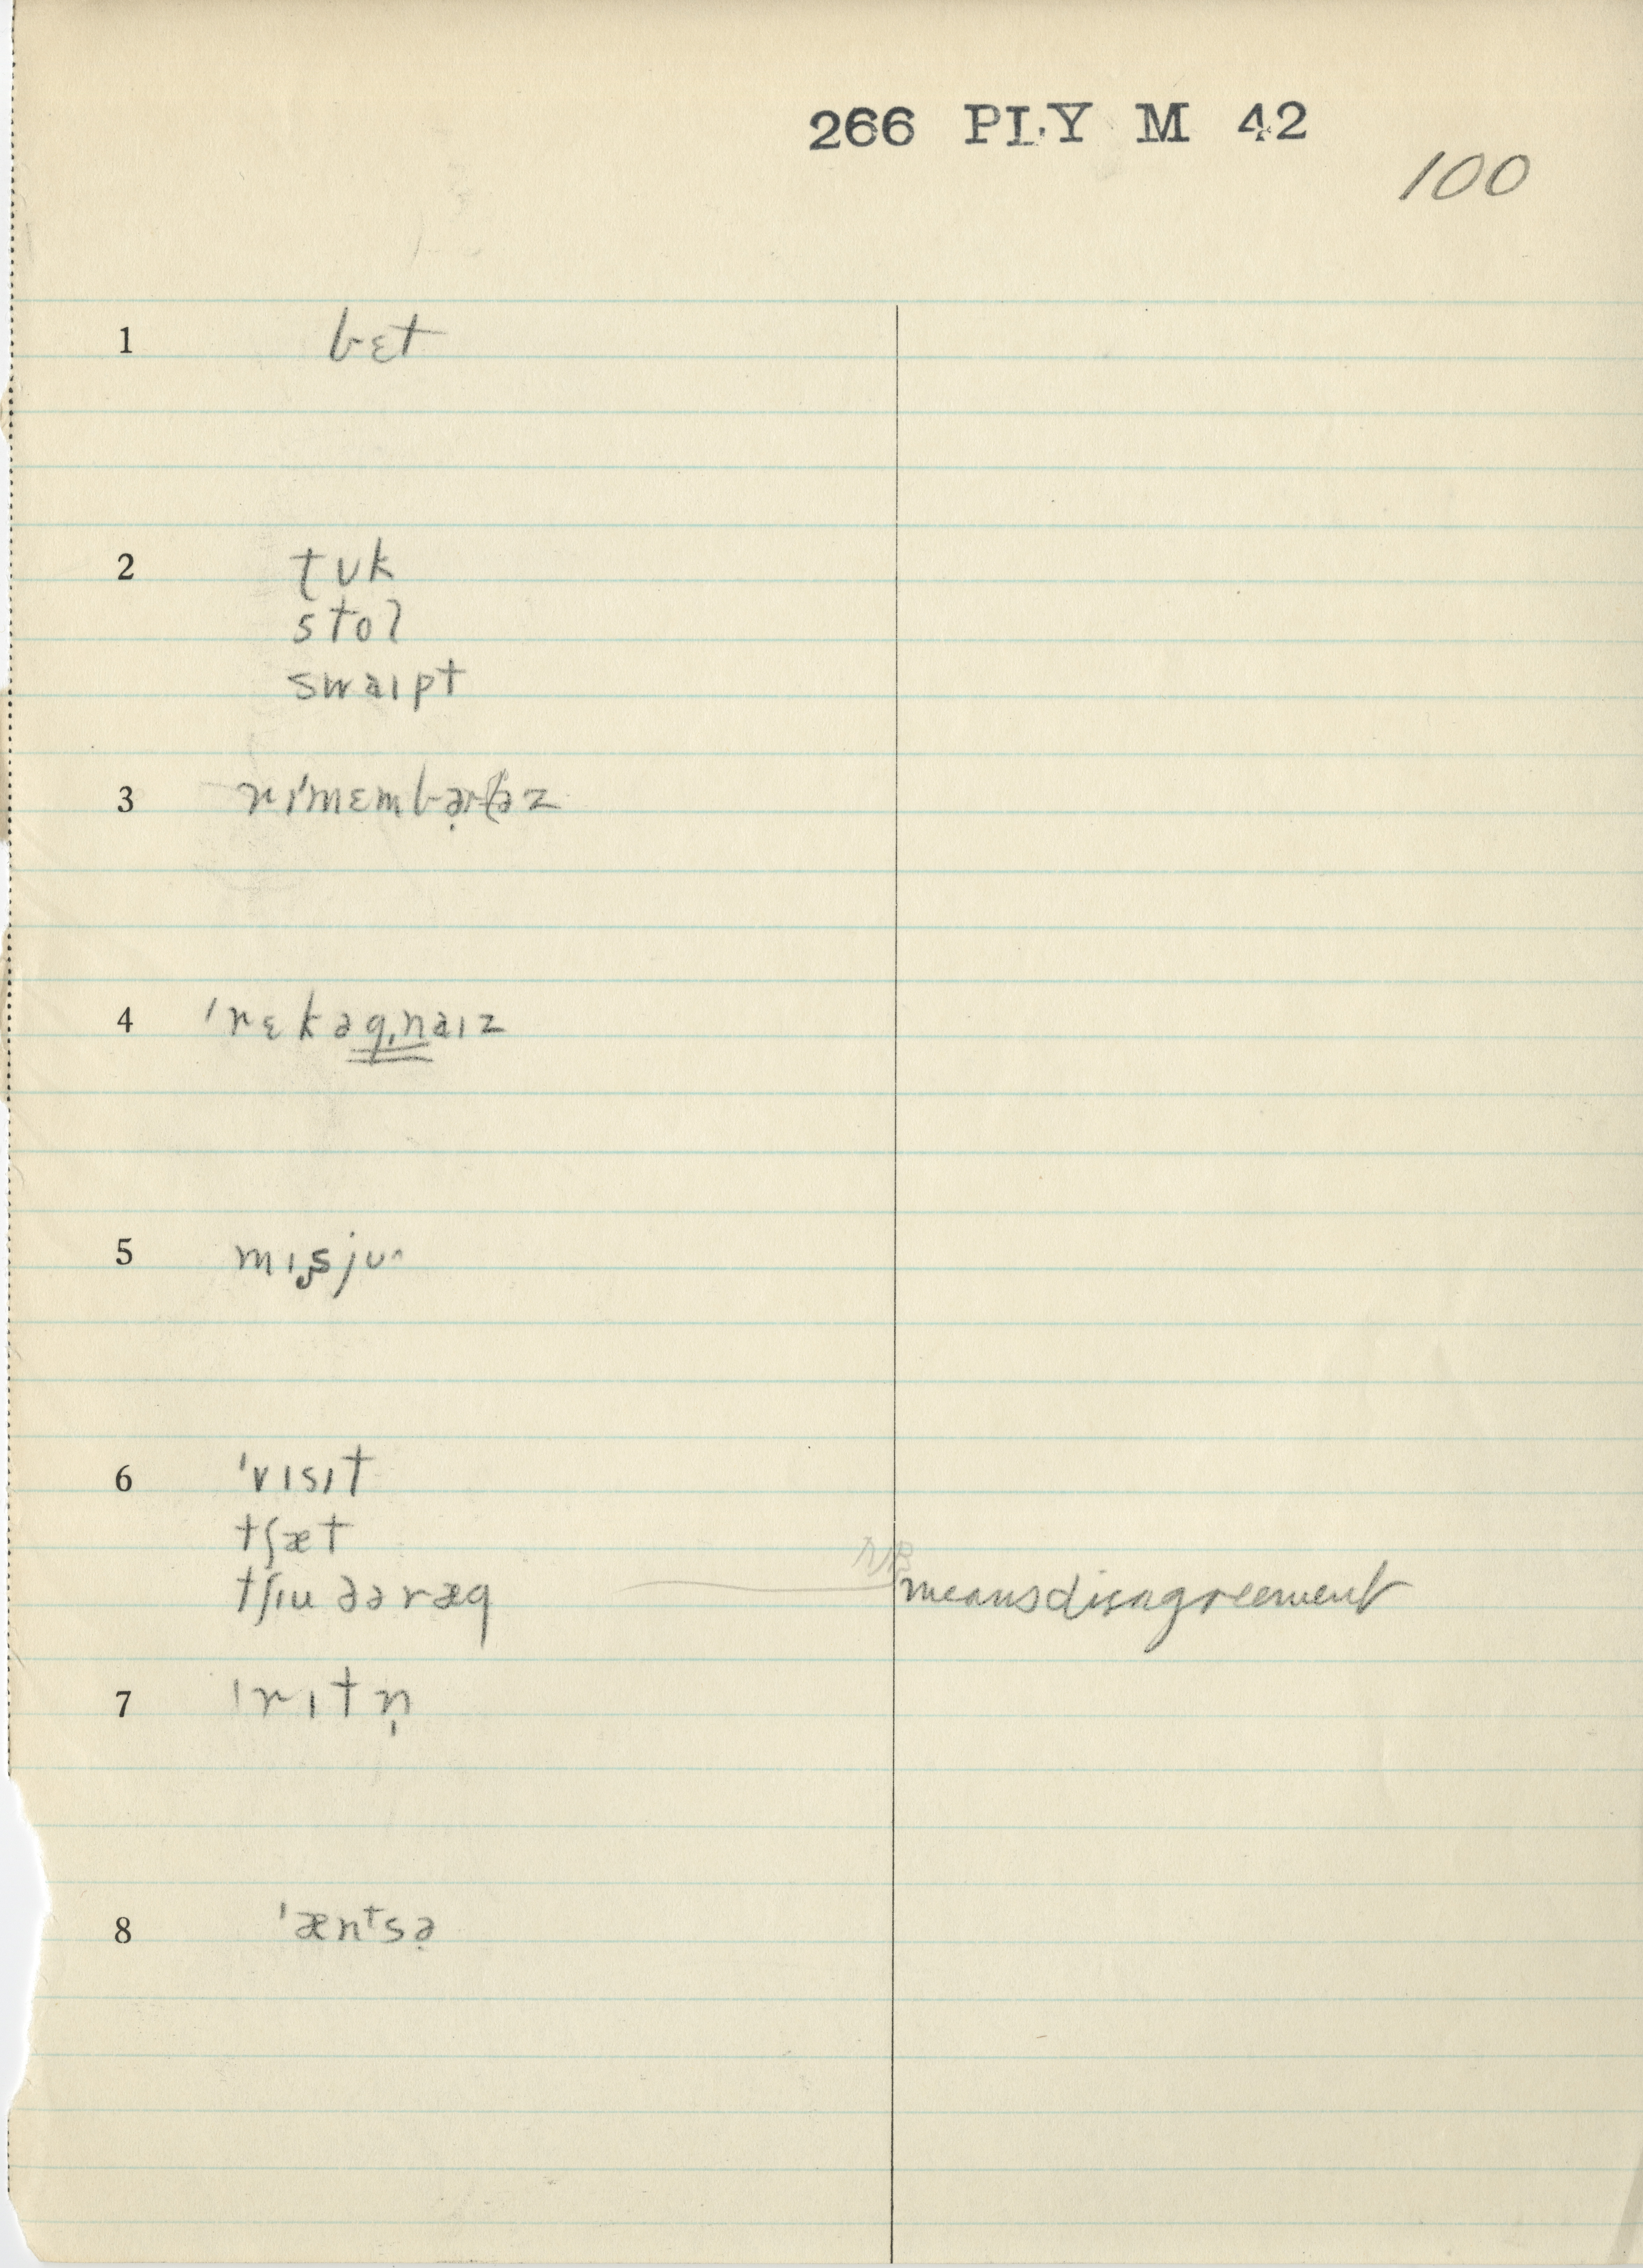 266 PLY M 42
100
1 bɛt
2 ʈʊk
stol
swaɪpt
3 rɪ'mɛmbə̣rəz
4 'rɛkəg,naɪz
5 mɪsju^
6 'vɪsɪt
tʃæt
tʃɪu ðə ræg means disagreement
7 'rɪtn̩
8 'æntsə̣